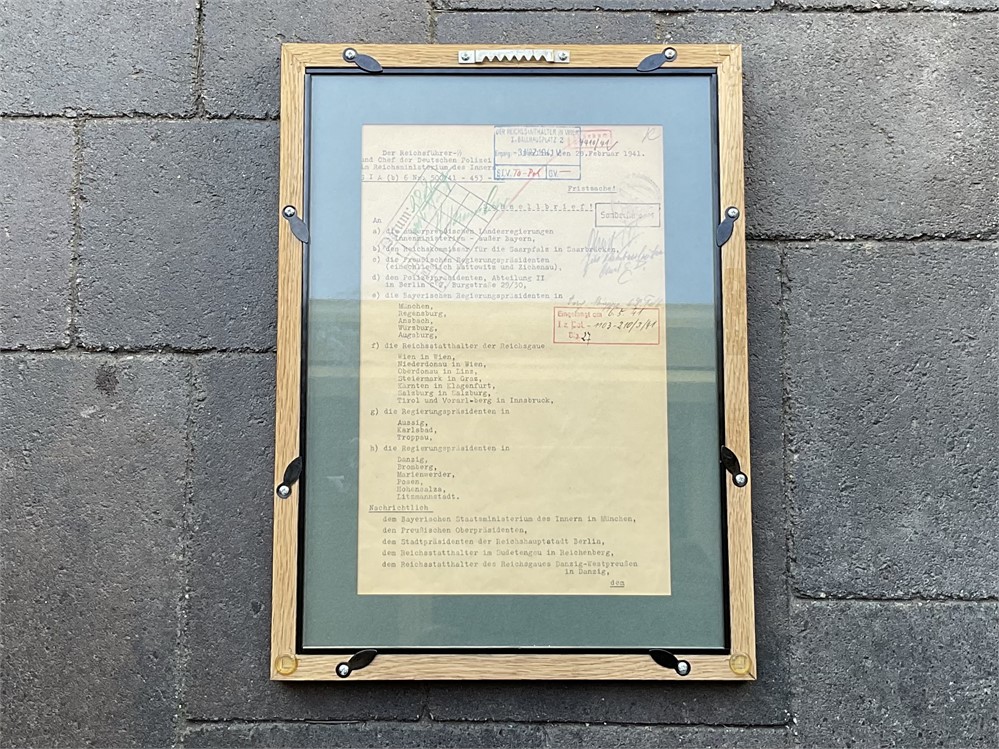 Der Reichsführer-
und Chef der Deutschen Polizei
im Reichsministerium des Innern
S I A (b) 6 Nr.
den 29. Februar 1941.
DER REICHSSTATTHALTER IN WIEN
I. BALLHAUSPLATZ 2
BLV. Ia-Pol
Fristsache!
Schnellbrief!
An
a) die außerpreußischen Landesregierungen
- Innenministerien - außer Bayern,
b) den Reichskommissar für die Saarpfalz in Saarbrücken,
c) die Preußischen Regierungspräsidenten
(einschließlich Kattowitz und Zichenau),
d) den Polizeipräsidenten, Abteilung II
in Berlin C 2, Burgstraße 29/30,
e) die Bayerischen Regierungspräsidenten in
München,
Regensburg,
Ansbach,
Würzburg,
Augsburg,
Eingelangt am
I a Pol. - 1103-210/3/41
Blg. 27
f) die Reichsstatthalter der Reichsgaue
Wien in Wien,
Niederdonau in Wien,
Oberdonau in Linz,
Steiermark in Graz,
Kärnten in Klagenfurt,
Salzburg in Salzburg,
Tirol und Vorarlberg in Innsbruck,
g) die Regierungspräsidenten in
Aussig,
Karlsbad,
Troppau,
h) die Regierungspräsidenten in
Danzig,
Bromberg,
Marienwerder,
Posen,
Hohensalza,
Litzmannstadt.
Nachrichtlich
dem Bayerischen Staatsministerium des Innern in München,
den Preußischen Oberpräsidenten,
dem Stadtpräsidenten der Reichshauptstadt Berlin,
dem Reichsstatthalter im Sudetengau in Reichenberg,
dem Reichsstatthalter des Reichsgaues Danzig-Westpreußen
in Danzig,
dem